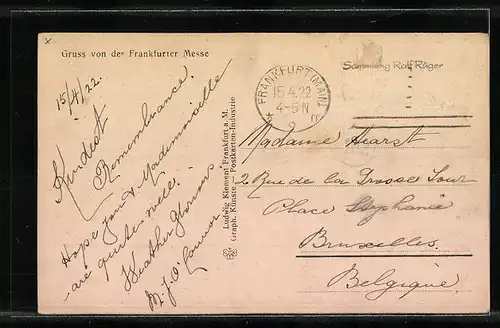 Gruss von der Frankfurter Messe
15/4/22.
Kindest
Remembrance.
Hope you & Mademoiselle
are quite well.
Weather Glorious
M. J. O'Connor
Ludwig Klement Frankfurt a. M.
Graph. Künste — Postkarten-Industrie
FRANKFURT (MAIN)
15.4.22
4-5 N
Sammlung Rolf Räger
Madame Hearst
2 Rue de la Grosse Tour
Place Stephanie
Bruxelles.
Belgique.